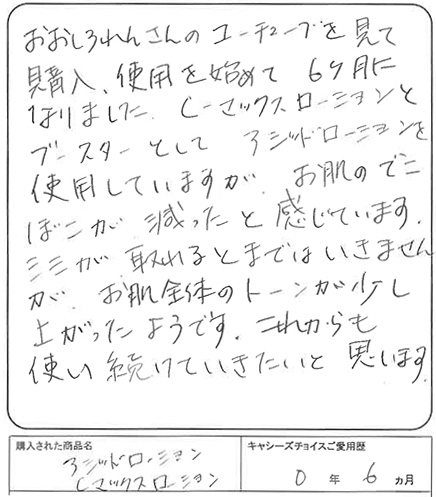 おおしろれんさんのユーチューブを見て
購入、使用を始めて 6ヶ月に
なりました。C-マックスローションと
ブースターとして アシッドローションを
使用していますが、お肌のでこ
ぼこが、減ったと感じています。
シミが、取れるとまではいきません
が、お肌全体のトーンが少し
上がったようです。これからも
使い続けていきたいと思います。
購入された商品名
アシッドローション
Cマックスローション
キャシーズチョイスご愛用歴
0 年 6 ヵ月